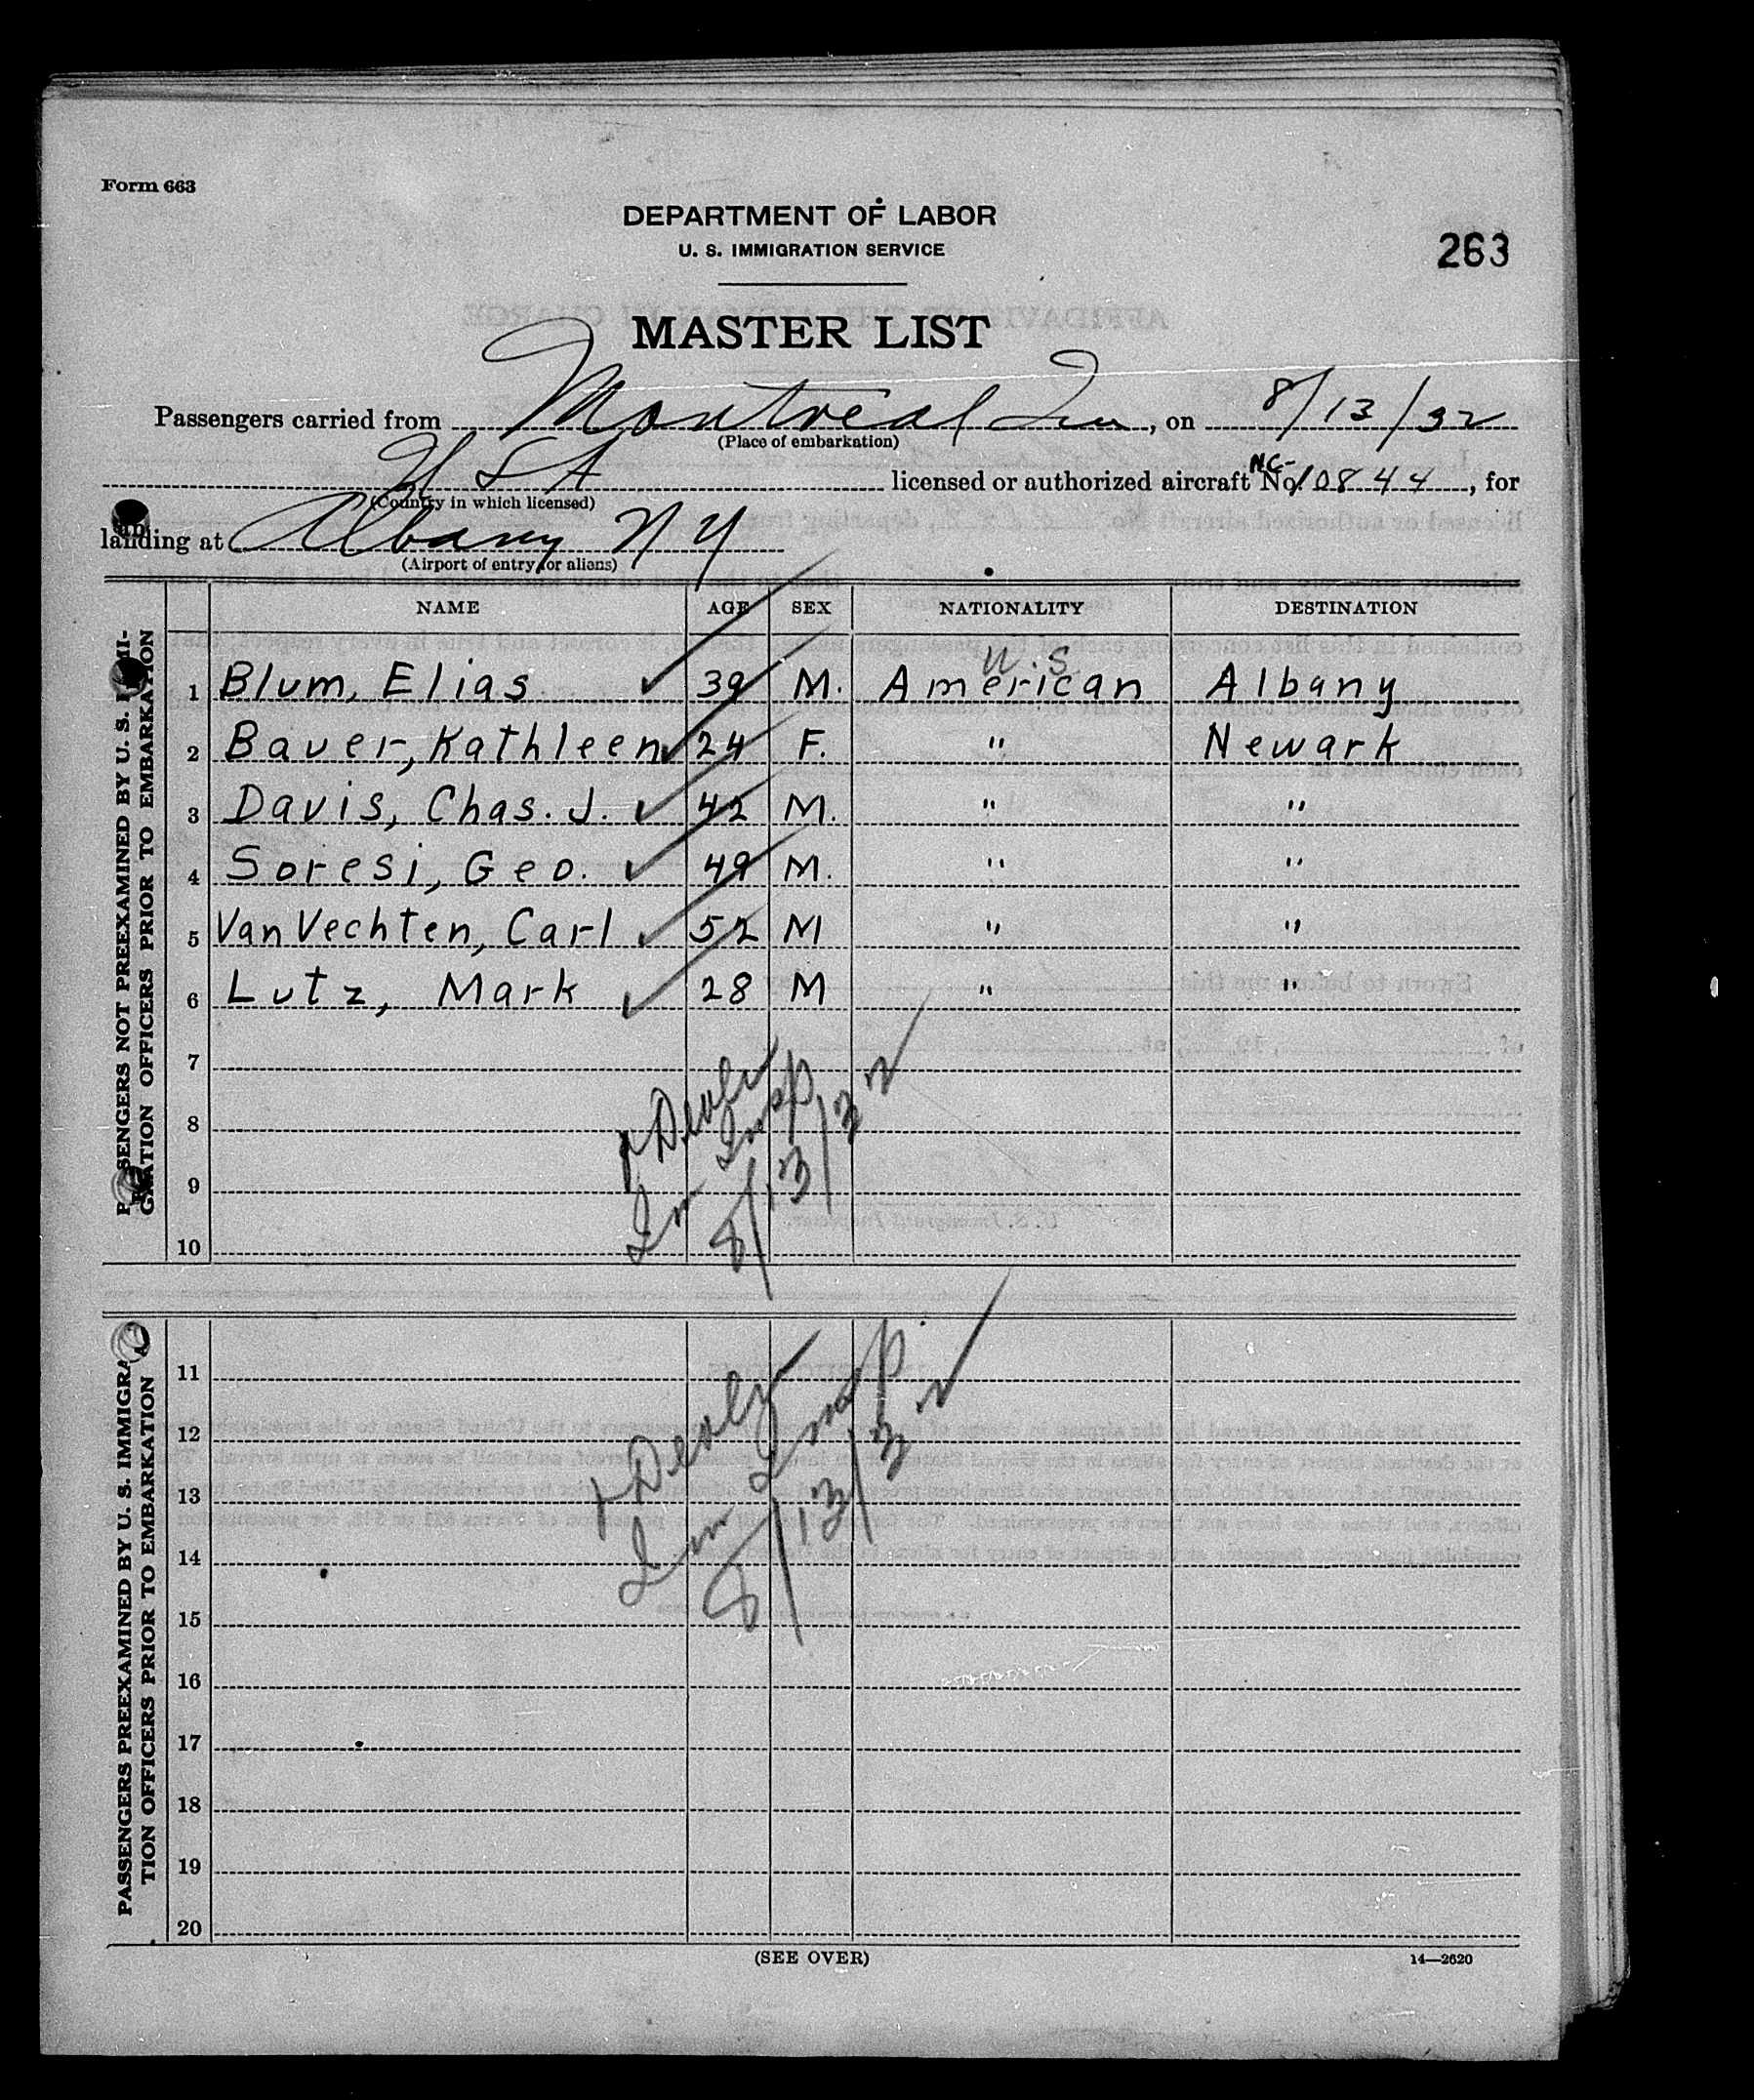 Form 663
DEPARTMENT OF LABOR
U. S. IMMIGRATION SERVICE
263
MASTER LIST
Passengers carried from Montreal Que, on 8/13/32
(Place of embarkation)
U S A licensed or authorized aircraft No. NC-10844, for
(Country in which licensed)
landing at Albany N Y
(Airport of entry for aliens)
PASSENGERS NOT PREEXAMINED BY U. S. IMMI-
GRATION OFFICERS PRIOR TO EMBARKATION
NAME AGE SEX NATIONALITY DESTINATION
U.S.
1 Blum, Elias ✓ 39 M. American Albany
2 Bauer, Kathleen ✓ 24 F. " Newark
3 Davis, Chas. J. ✓ 42 M. " "
4 Soresi, Geo. ✓ 49 M. " "
5 Van Vechten, Carl ✓ 52 M " "
6 Lutz, Mark ✓ 28 M " "
7
8
9
10
Im Insp
8/13/32
PASSENGERS PREEXAMINED BY U. S. IMMIGRA-
TION OFFICERS PRIOR TO EMBARKATION
11
12
13
14
15
16
17
18
19
20
Im Insp
8/13/32
(SEE OVER)
14—2620